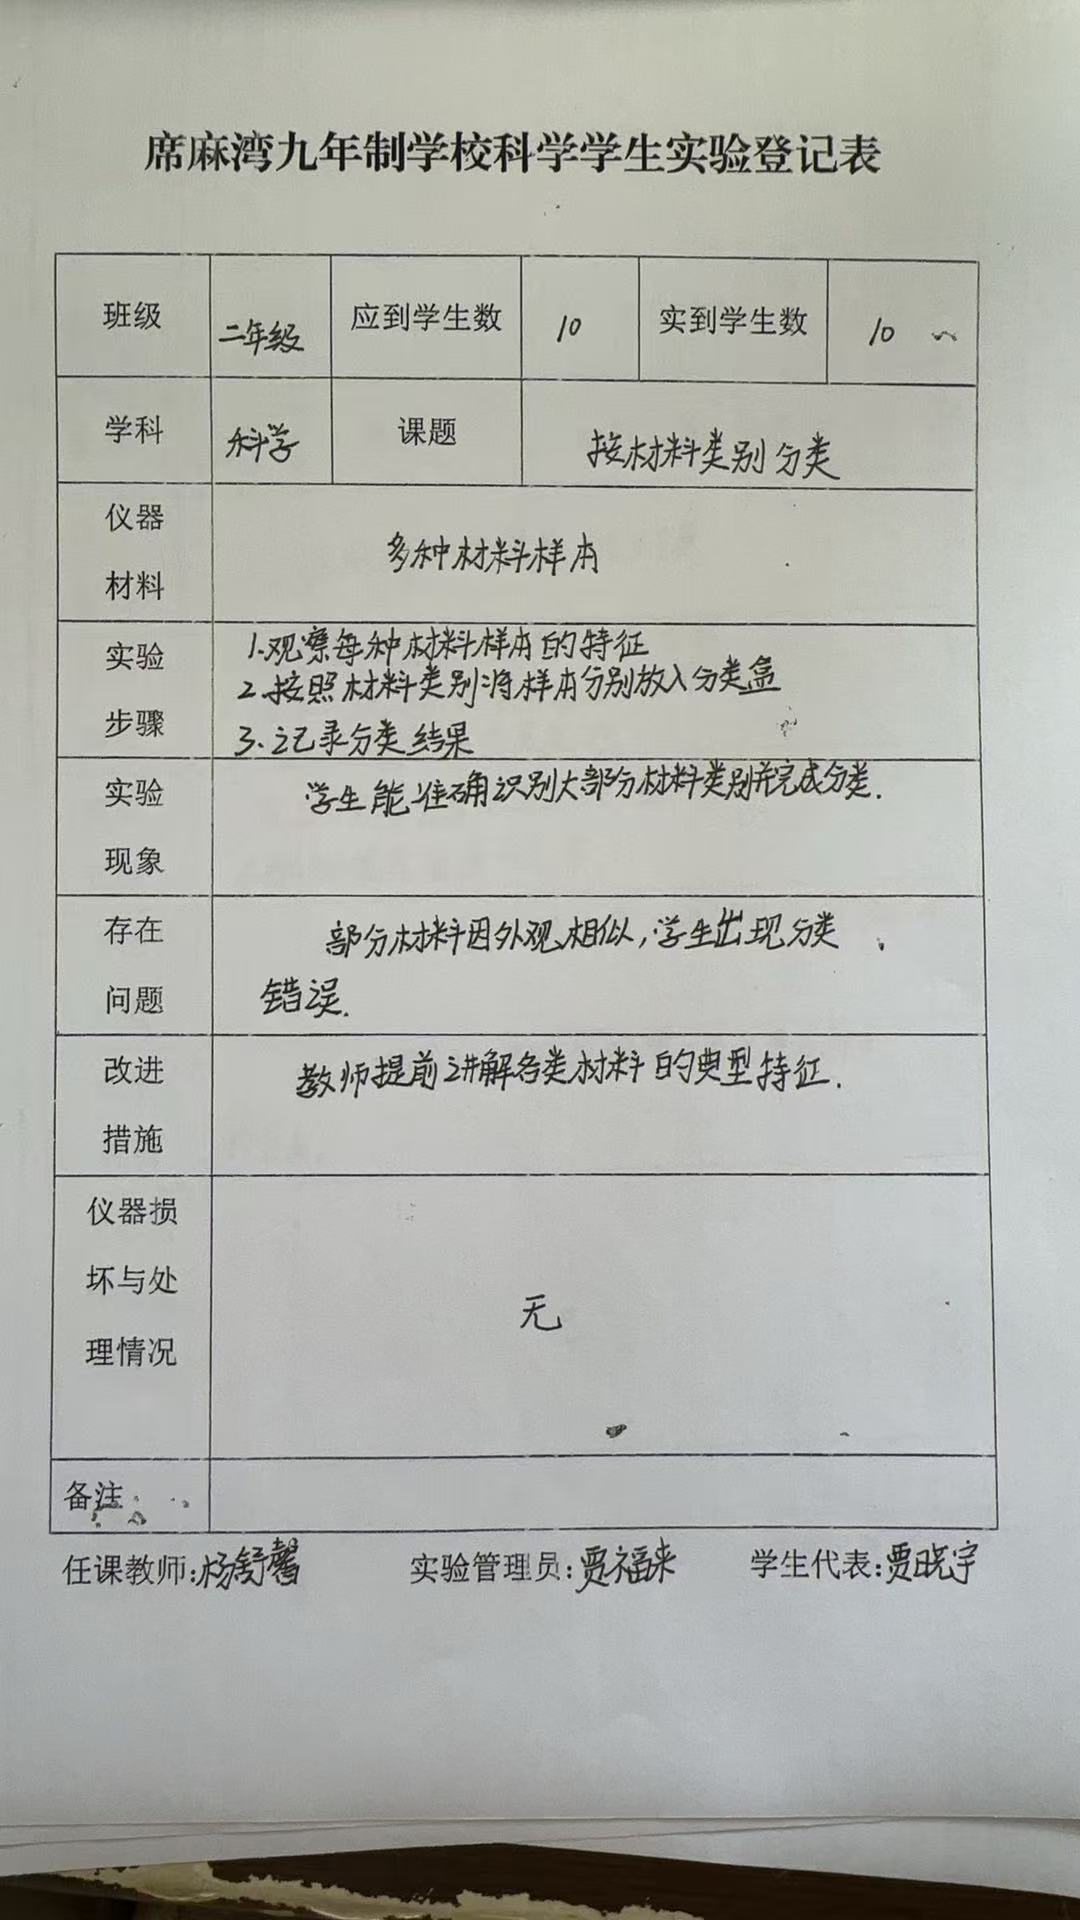 席麻湾九年制学校科学学生实验登记表
班级 二年级 应到学生数 10 实到学生数 10
学科 科学 课题 按材料类别分类
仪器
材料
多种材料样本
实验
步骤
1.观察每种材料样本的特征
2.按照材料类别将样本分别放入分类盒
3.记录分类结果
实验
现象
学生能准确识别大部分材料类别并完成分类.
存在
问题
部分材料因外观相似,学生出现分类
错误.
改进
措施
教师提前讲解各类材料的典型特征.
仪器损
坏与处
理情况
无
备注
任课教师:杨舒馨 实验管理员:贾福来 学生代表:贾晓宇